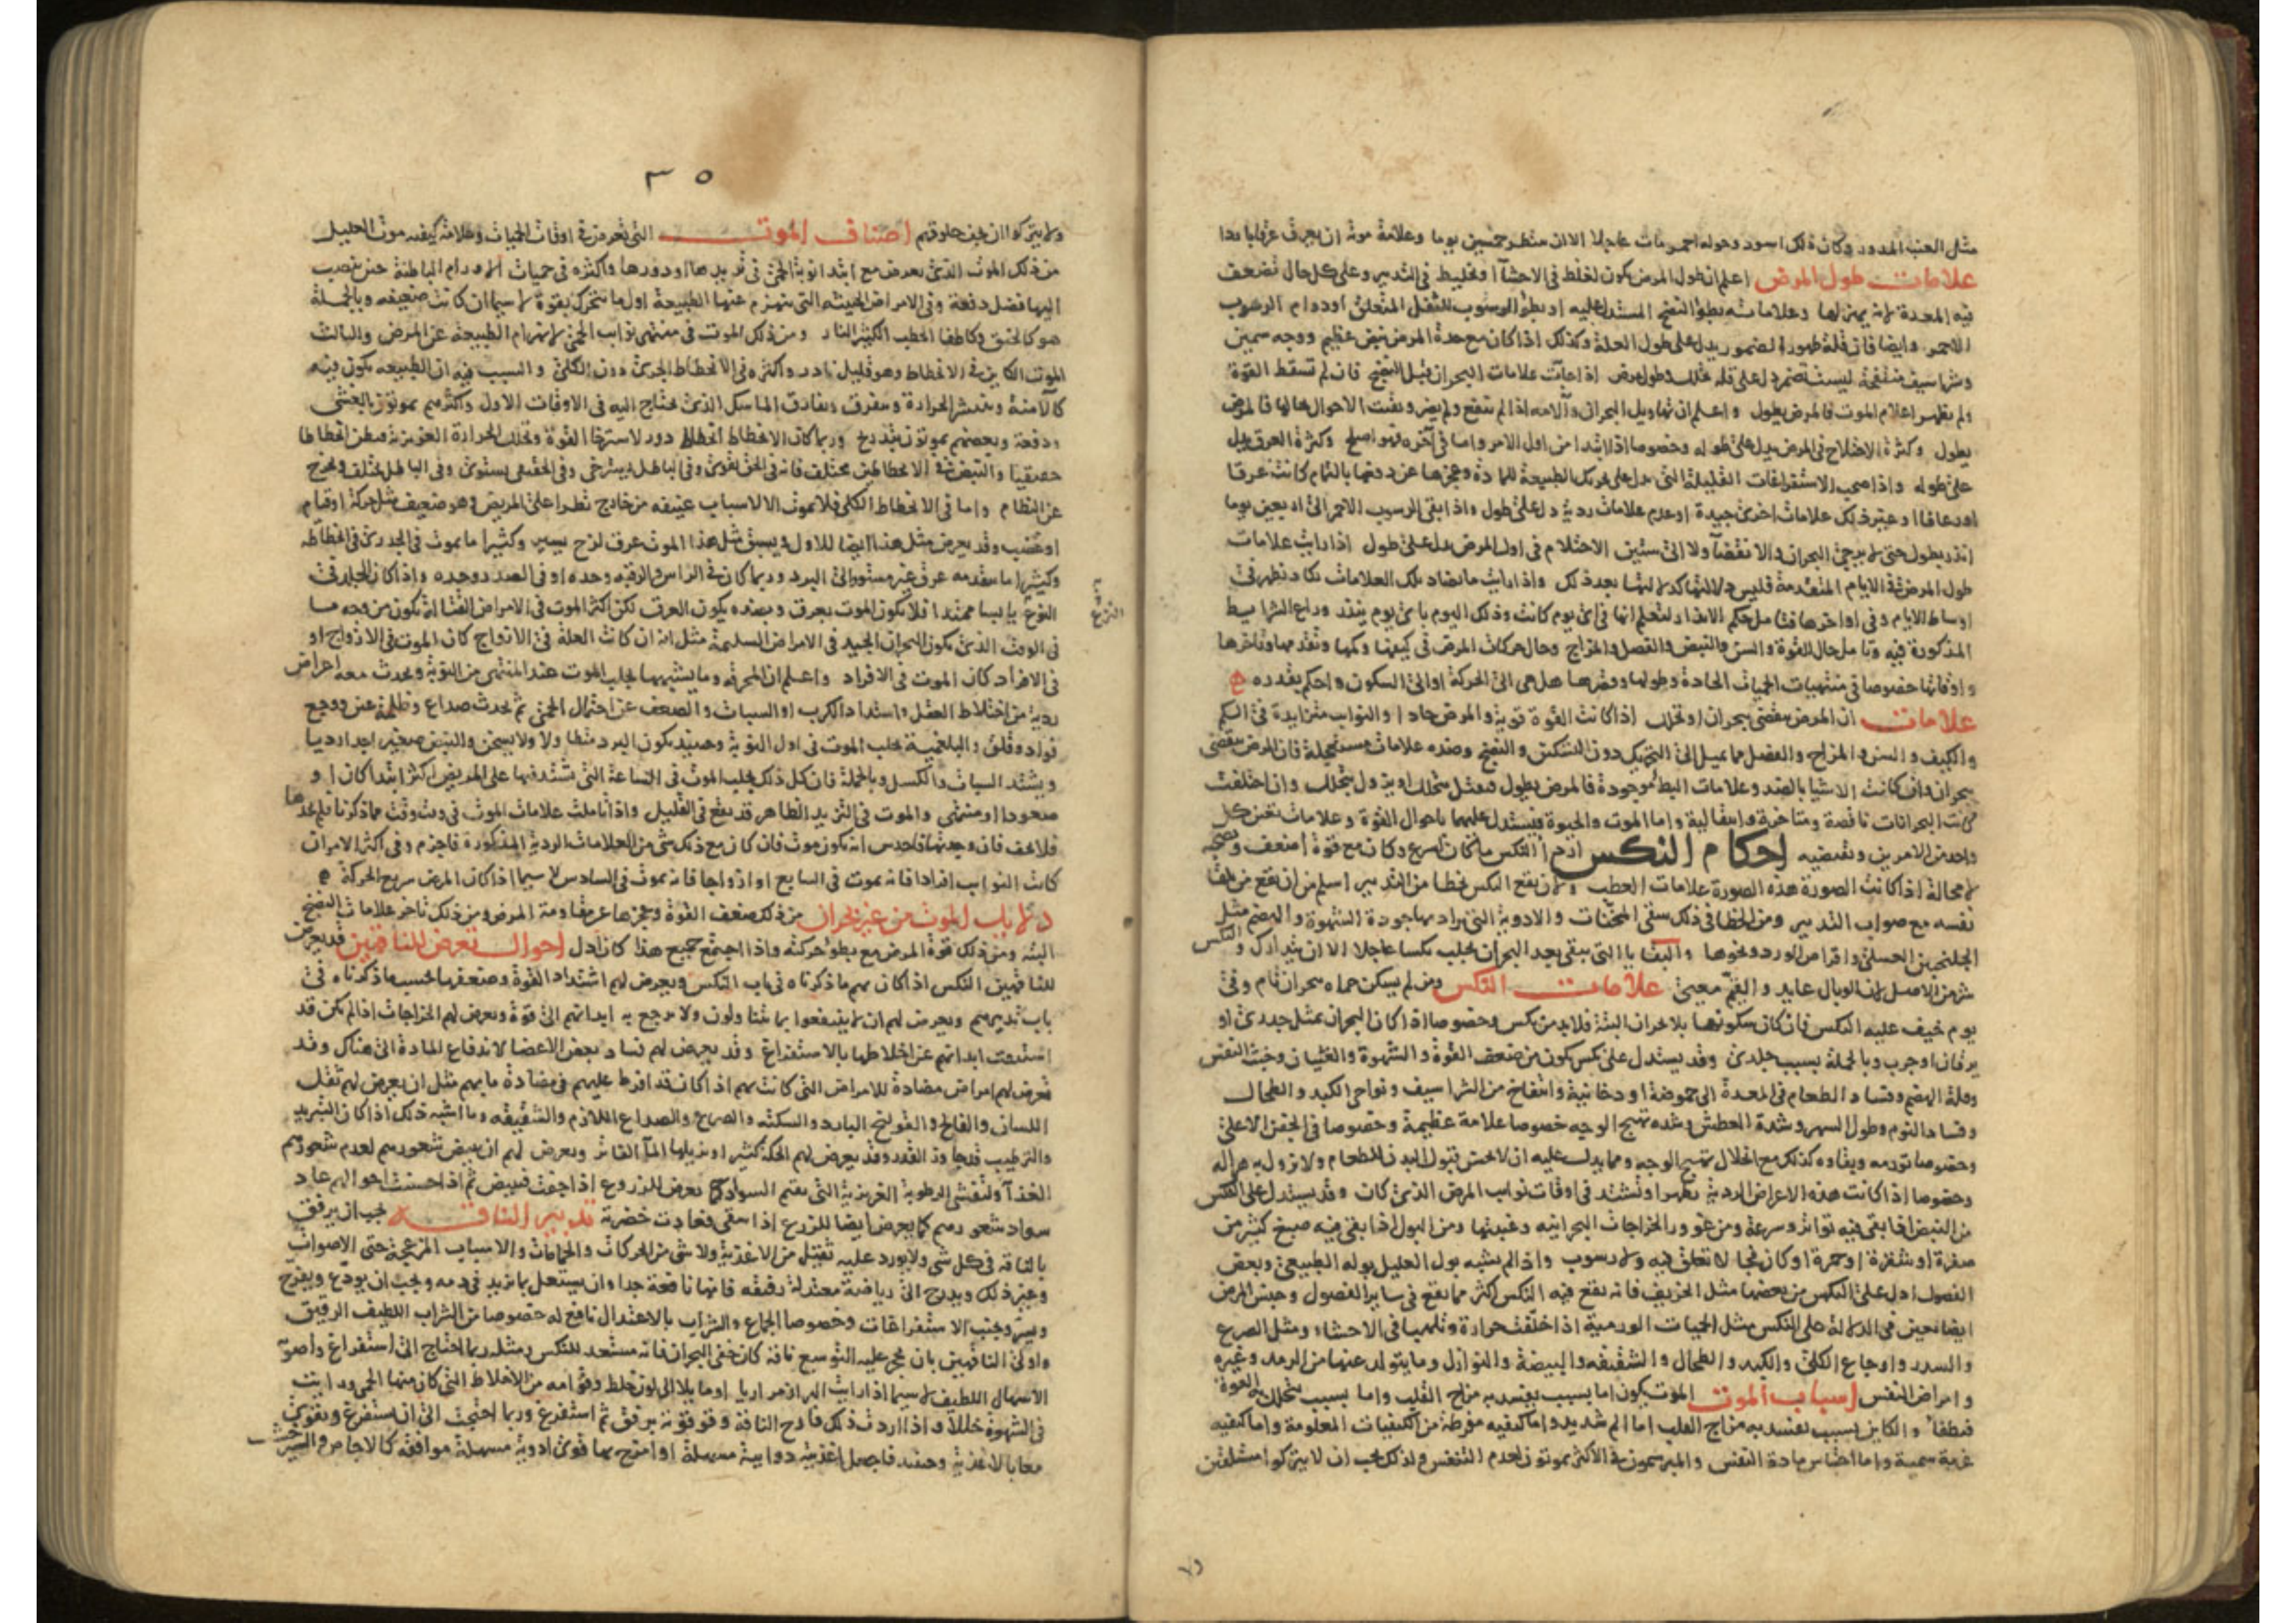 مثل العنب المدور وكان ذلك اسود وحوله احمر مات عاجلا الا انه ينتظر خمسين يوما وعلامة موته ان يعرق عرقا باردا
علامات طول المرض اعلم ان طول المرض يكون لغلط في الاحشا او تخليط في التدبير وعلى كل حال تضعف
فيه المعدة لانه يهزلها وعلاماته بطؤ النضج المستدل عليه او بطؤ الرسوب للثفل المتعلق او دوام الرسوب
الاحمر وايضا فان قلة ظهور الضمور يدل على طول العلة وكذلك اذا كان مع حدة المرض نبض عظيم ووجه سمين
وشراسيف منتفخة ليست تضمر دل على قلة تحلل وطول مرض اذا جآت علامات البحران قبل النضج فان لم تسقط القوة
ولم يظهر اعلام الموت فالمرض يطول واعلم ان تهاويل البحران وآلامه اذا لم تنفع ولم يضر وبقيت الاحوال بحالها فالمرض
يطول وكثرة الاختلاج في المرض يدل على طوله وخصوصا اذا ابتدا من اول الامر واما في آخره فهو اصلح وكثرة العرق يدل
على طوله واذا صحب الاستفراغات القليلة التي يدل على تحريك الطبيعة للمادة وعجزها عن دفعها بالتمام كانت عرقا
او رعافا او غير ذلك علامات اخرى جيدة او عدم علامات ردية دل على طول واذا بقي الرسوب الاحمر الى اربعين يوما
انذر بطول حتى لا يرجى البحران والانقضآ ولا الى ستين الاحتلام في اول المرض يدل على طول اذا رايت علامات
طول المرض في الايام المتقدمة فليس دلالتها كدلالتها بعد ذلك واذا رايت ما يضاد تلك العلامات يكاد تظهر في
اوساط الايام وفي اواخرها فتامل حكم الانذار لتعلم انها في اي يوم كانت وذلك اليوم باي يوم ينذر وراع الشرايط
المذكورة فيه وتامل حال القوة والسن والنبض والفصل والمزاج وحال حركات المرض في كيفها وكمها وتقدمها وتاخرها
واوقاتها خصوصا في منتهيات الحميات الحادة وطولها وقصرها هل هي الى الحركة او الى السكون واحكم بقدره
علامات ان المرض ينقضي ببحران او تحلل اذا كانت القوة قوية والمرض حادا والنوايب متزايدة في الكم
والكيف والسن والمزاج والفصل مما يميل الى التحريك دون التسكين والنضج وضده علامات مستعجلة فان المرض ينقضي
ببحران وان كانت الاشيا بالضد وعلامات البطؤ موجودة فالمرض يطول فيقتل بتحلل او يزول بتحلل وان اختلفت
كانت البحرانات ناقصة ومتاخرة وانتقالية واما الموت والحيوة فيستدل عليهما باحوال القوة وعلامات نحن كل
واحد من الامرين ونقيضيه احكام النكس اردا النكس ما كان اسرع وكان مع قوة اضعف ويصحبه
لا محالة اذا كانت الصورة هذه الصورة علامات العطب ولان يقع النكس بخطا من التدبير اسلم من ان يقع من تلقا
نفسه مع صواب التدبير ومن الخطا في ذلك سقى المسخنات والادوية التي يراد بها جودة الشهوة والهضم مثل
الجلنجبين العسلي واقراص الورد ونحوها والبقايا التي يبقى بعد البحران يجلب نكسا عاجلا الا ان يتدارك والنكس
شر من الاصل لان الوبال عايد والقيم معيى علامات النكس ومن لم يسكن حماه ببحران تام وفي
يوم خيف عليه النكس فان كان سكونها بلا بحران البتة فلا بد من نكس وخصوصا اذا كان البحران بمثل جدري او
يرقان او جرب وبالجملة بسبب جلدي وقد يستدل على نكس يكون من ضعف القوة والشهوة والغثيان وخبث النفس
وقلة الهضم وفساد الطعام في المعدة الى حموضة او دخانية وانتفاخ من الشراسيف ونواحي الكبد والطحال
وفساد النوم وطول السهر وشدة العطش وشدة تهيج الوجه خصوصا علامة عظيمة وخصوصا في الجفن الاعلى
وخصوصا تورمه وبقاوه كذلك مع انحلال تهيج الوجه ومما يدل عليه ان لا يحسن قبول البدن للطعام ولا يزول به هزاله
وخصوصا اذا كانت هذه الاعراض الردية يظهر او تشتد في اوقات نوايب المرض الذي كان وقد يستدل على النكس
من النبض اذا بقي فيه تواتر وسرعة ومن غوور الخراجات البحرانيه وغيبتها ومن البول اذا بقي فيه صبغ كثير من
صفرة او شقرة او حمرة او كان فجا لا تعلق فيه ولا رسوب واذا لم يشبه بول العليل بوله الطبيعي وبعض
الفصول ادل على النكس من بعضها مثل الخريف فانه يقع فيه النكس اكثر مما يقع في ساير الفصول وجنس المرض
ايضا يعين في الدلالة على النكس مثل الحميات الورمية اذا خلفت حرارة وتلهبا في الاحشاء ومثل الصرع
والسدر واوجاع الكلى والكبد والطحال والشقيقه والبيضة والنوازل وما يتولد عنها من الرمد وغيره
وامراض النفس اسباب الموت الموت يكون اما بسبب يفسد به مزاج القلب واما بسبب يتحلل به القوة
فتطفأ والكاين بسبب يفسد به مزاج القلب اما الم شديد واما كيفيه مفرطة من الكيفيات المعلومة واما كيفيه
غريبة سمية واما احتباس مادة النفس والمبرسمون في الاكثر يموتون لعدم التنفس ولذلك يجب ان لا يتركوا مستلقين
٣٥
ولا يتركوا ان يجف حلوقهم اصناف الموت التي تعرض في اوقات الحميات وعلامة كيفيه موت العليل
من ذلك الموت الذي يعرض مع ابتدا نوبة الحمى في تزيدها او دورها واكثره في حميات الاورام الباطنة حين ينصب
اليها فضل دفعة وفي الامراض الخبيثه التي ينهزم عنها الطبيعة اول ما تتحرك بقوة لا سيما ان كانت ضعيفه وبالجملة
هو كالخنق وكاطفا الحطب الكثير النار ومن ذلك الموت في منتهى نوايب الحمى لانهزام الطبيعة عن المرض والثالث
الموت الكاين في الانحطاط وهو قليل نادر واكثره في الانحطاط الجزئي دون الكلي والسبب فيه ان الطبيعه يكون فيه
كالآمنة وينتشر الحرارة ويتفرق ويفارق الماسك الذي يحتاج اليه في الاوقات الاول واكثرهم يموتون بالغشي
ودفعة وبعضهم يموتون بتدريج وربما كان الانحطاط انحطاط دور لاسترخا القوة وتحلل الحرارة الغريزية فيظن انحطاطا
حقيقيا والنبض في الانحطاطين يختلف فانه في الحق يقوى وفي الباطل يسترخي وفي الحقيقي يستوي وفي الباطل يختلف ويخرج
عن النظام واما في الانحطاط الكلي فلا يموت الا لاسباب عنيفه من خارج تطرا على المريض وهو ضعيف مثل حركة او قيام
او غضب وقد يعرض مثل هذا ايضا للاول ويسبق مثل هذا الموت عرق لزج يسير وكثيرا ما يموت في الجدري في انحطاطه
وكثيرا ما يتقدمه عرق غير مستو والى البرد وربما كان في الراس والرقبه وحده او في الصدر وحده واذا كان الجلد في
النزع يابسا ممتدا فلا يكون الموت بعرق وبضده يكون العرق لكن اكثر الموت في الامراض القتالة يكون من وجه ما
النزع
في الوقت الذي يكون البحران الجيد في الامراض السليمة مثل انه ان كانت العلة في الازواج كان الموت في الازواج او
في الافراد كان الموت في الافراد واعلم ان المحرقه وما يشبهها يجلب الموت عند المنتهى من النوبة ويحدث معه اعراض
ردية من اختلاط العقل واشتداد الكرب او السبات والضعف عن احتمال الحمى ثم يحدث صداع وظلمة عين ووجع
فواد وقلق والبلغمية يجلب الموت في اول النوبة وحينئذ يكون البرد متطاولا ولا يسخن والنبض صغيرا جدا رديا
ويشتد السبات والكسل وبالجملة فان كل ذلك يجلب الموت في الساعة التي تشتد فيها على المريض اكثر ابتدا كان او
صعودا او منتهى والموت في التزيد الظاهر قد يقع في القليل واذا تاملت علامات الموت في وقت وقت مما ذكرنا فلم تجدها
فلا تخف فان وجدتها فاحدس انه يكون موت فان كان مع ذلك شي من العلامات الردية المذكورة فاجزم وفي اكثر الامر ان
كانت النوايب افرادا فانه يموت في السابع او ازواجا فانه يموت في السادس لا سيما اذا كان المرض سريع الحركة
دلايل الموت من غير بحران من ذلك ضعف القوة وعجزها عن مقاومة المرض ومن ذلك تاخر علامات النضج
البتة ومن ذلك قوة المرض مع بطؤ حركته واذا اجتمع جميع هذا كان ادل احوال تعرض للناقهين قد يعرض
للناقهين النكس اذا كان بهم ما ذكرناه في باب النكس ويعرض لهم اشتداد القوة وضعفها بحسب ما ذكرناه في
باب تدبيرهم ويعرض لهم ان لا ينتفعوا بما يتناولون ولا يرجع به ابدانهم الى قوة ويعرض لهم الخراجات اذا لم يكن قد
استنقت ابدانهم عن اخلاطها بالاستفراغ وقد يعرض لهم فساد بعض الاعضا لاندفاع المادة الى هناك وقد
تعرض لهم امراض مضادة للامراض التي كانت بهم اذا كان قد افرط عليهم في مضادة ما بهم مثل ان يعرض لهم ثقل
اللسان والفالج والقولنج البارد والسكته والصرع والصداع اللازم والشقيقه وما اشبه ذلك اذا كان التبريد
والترطيب قد جاوز القدر وقد يعرض لهم الحكة كثيرا ويزيلها المآ الفاتر ويعرض لهم ان يبيض شعورهم لعدم شعورهم
الغذآ ولتفشي الرطوبة الغريزية التي بقيم السواد كما يعرض للزروع اذا جفت فتبيض ثم اذا حسنت احوالهم عاد
سواد شعورهم كما يعرض ايضا للزرع اذا سقي فعادت خضرته تدبير الناقه يجب ان يرفق
بالناقه في كل شي ولا يورد عليه ثقيل من الاغذية ولا شي من الحركات والحمامات والاسباب المزعجة حتى الاصوات
وغير ذلك ويدرج الى رياضية معتدلة رقيقه فانها نافعة جدا وان يشتغل بما يزيد في دمه ويجب ان يودع ويفرح
ويسر ويجنب الاستفراغات وخصوصا الجماع والشراب بالاعتدال نافع له خصوصا من الشراب اللطيف الرقيق
واولى الناقهين بان يحجر عليه التوسع ناقه كان خفي البحران فانه مستعد للنكس ومثله ربما احتاج الى استفراغ واصوبه
الاسهال اللطيف لا سيما اذا رايت البراز مراريا او مايلا الى لون خلط وقوامه من الاخلاط التي كان منها الحمى ورايت
في الشهوة خللا واذا اردت ذلك فارح الناقه وقو قوته برفق ثم استفرغ وربما احتجت الى ان تستفرغ وتقوى
معا بالاغذية وحينئذ فاجعل اغذيته دوايية مسهلة او امزج بها قوى ادوية مسهلة موافقه كالاجاص والشيرخشت